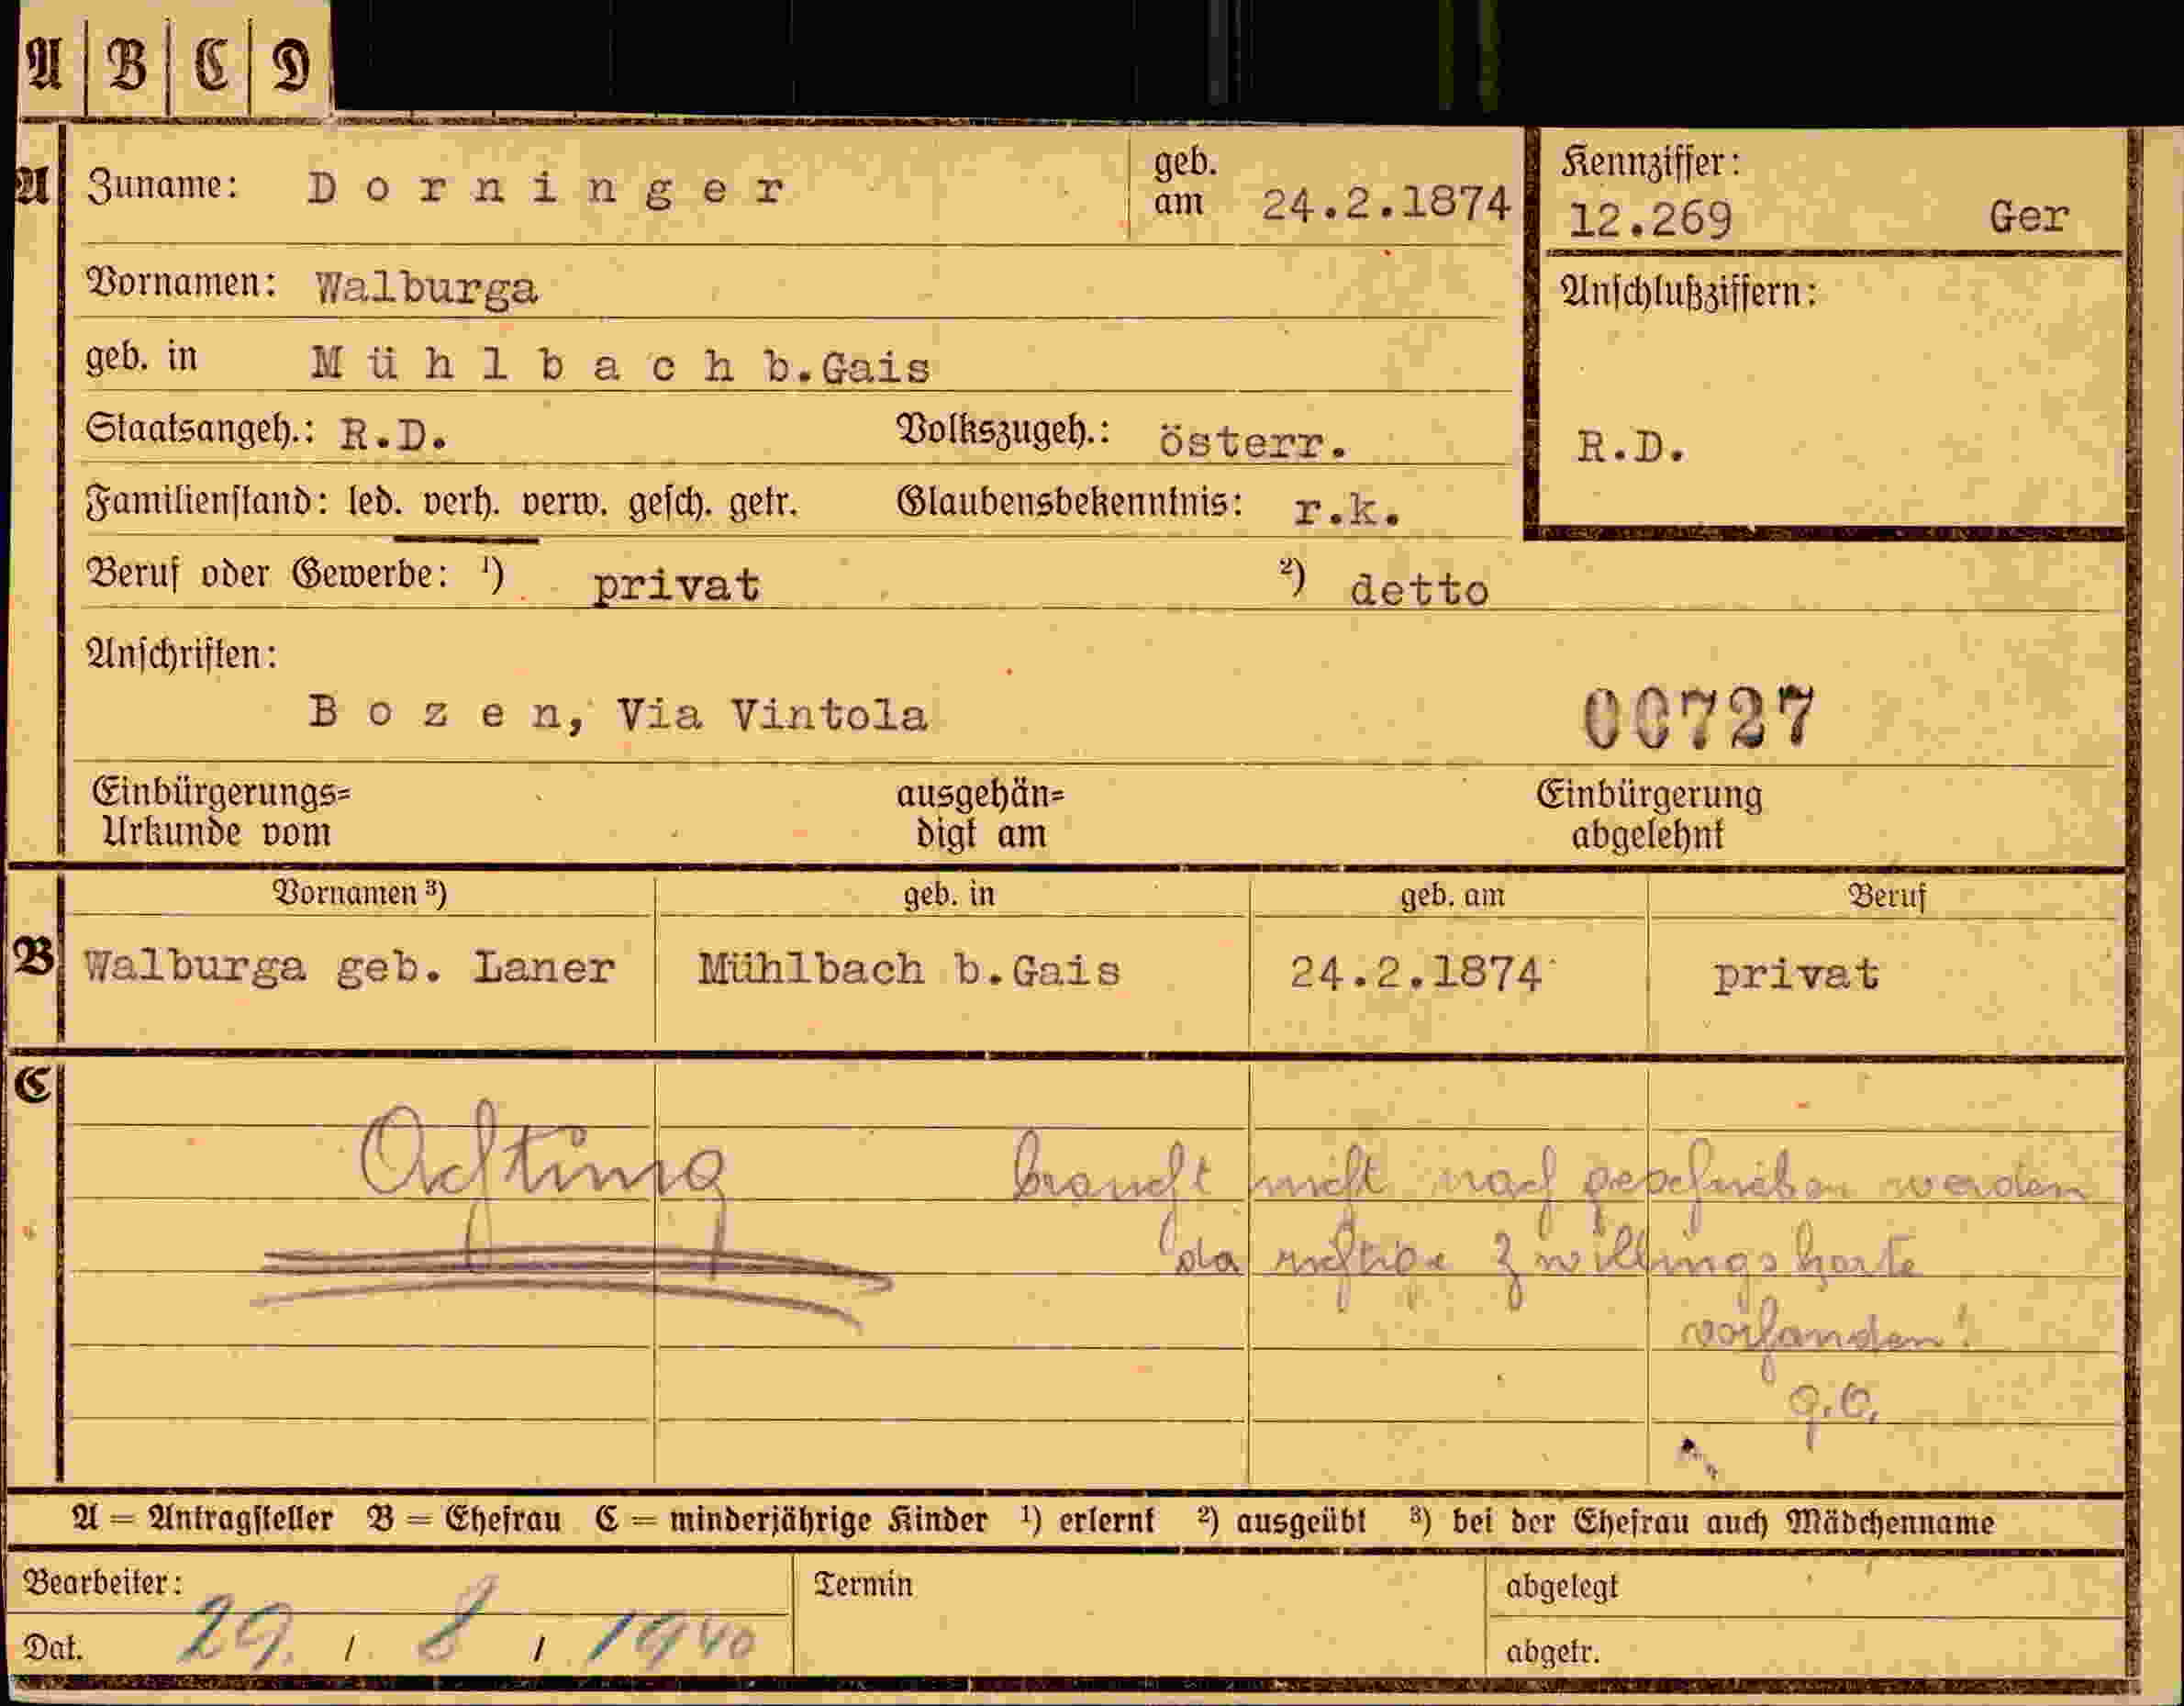 A B C D
A Zuname: Dorninger geb. am 24.2.1874
Kennziffer:
12.269 Ger
Vornamen: Walburga
Anschlußziffern:
geb. in Mühlbach b.Gais
Staatsangeh.: R.D. Volkszugeh.: österr.
R.D.
Familienstand: led. verh. verw. gesch. getr. Glaubensbekenntnis: r.k.
Beruf oder Gewerbe: ¹) privat ²) detto
Anschriften:
Bozen, Via Vintola 00727
Einbürgerungs= ausgehän= Einbürgerung
Urkunde vom digt am abgelehnt
Vornamen ³) geb. in geb. am Beruf
B Walburga geb. Laner Mühlbach b.Gais 24.2.1874 privat
C
Achtung braucht nicht nach geschrieben werden
da richtige Zwillingskarte
vorhanden!
A = Antragsteller B = Ehefrau C = minderjährige Kinder ¹) erlernt ²) ausgeübt ³) bei der Ehefrau auch Mädchenname
Bearbeiter: Termin abgelegt
Dat. 29. / 8 / 1940 abgetr.